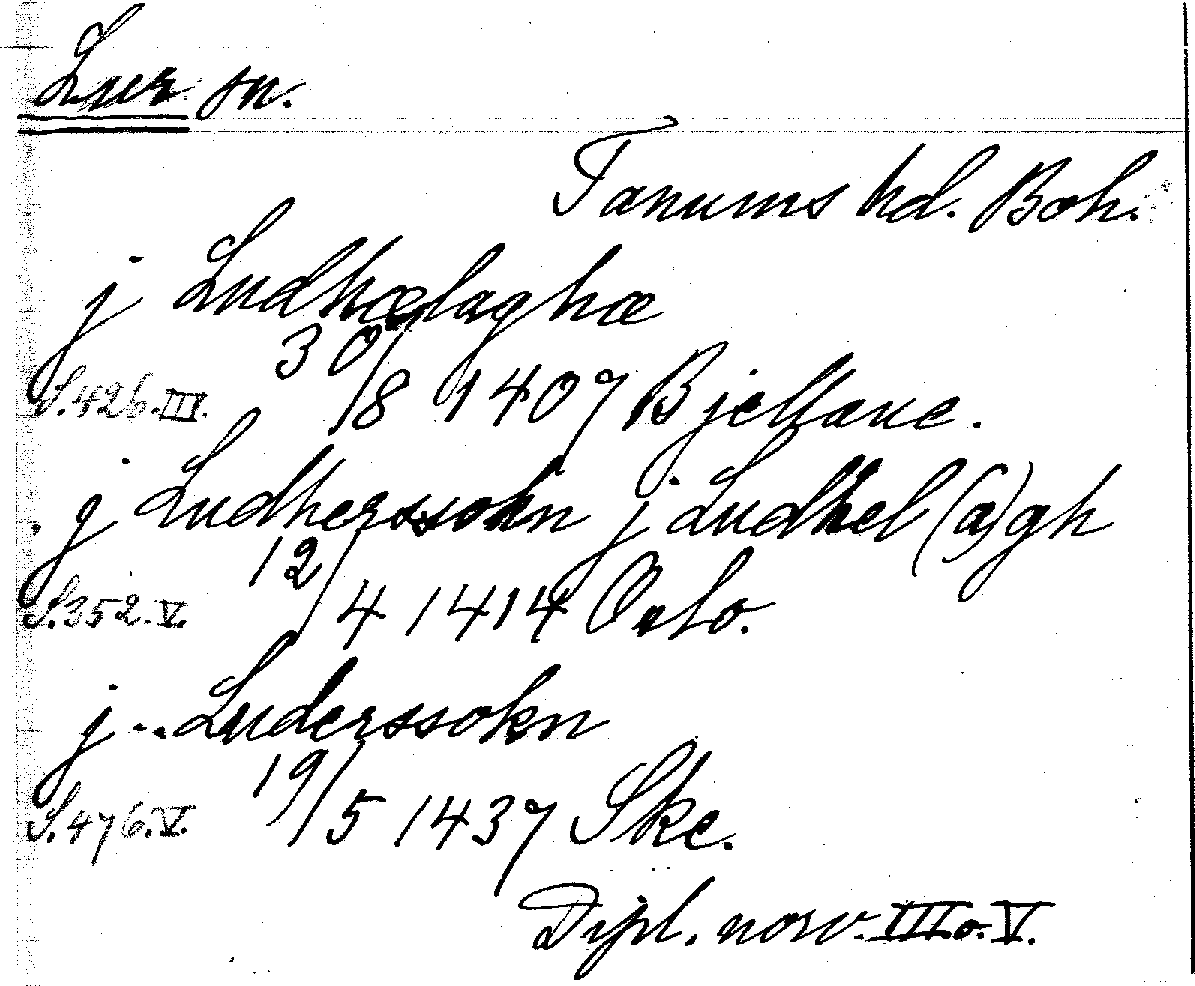 Lur sn.
Tanums hd. Boh.
j Ludhælaghæ
S. 426. III. 30/8 1407 Bjellane.
j Ludherssokn j Ludhel(a)gh
S. 352. V. 12/4 1414 Oslo.
j .. Luderssokn
S. 476. V. 19/5 1437 Ske.
Dipl. norv. III o. V.